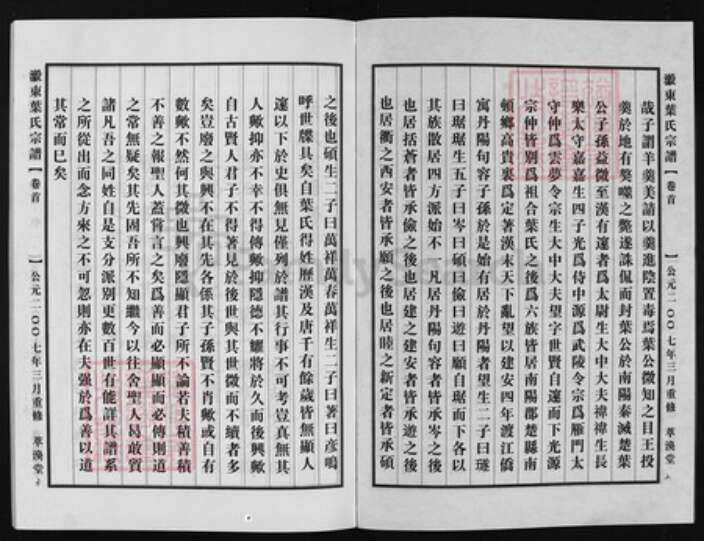 哉子謂羊羹美請以羹進陰置毒焉葉公微知之目王投
羹於地有獒噬之斃遂誅佩而封葉公於南陽秦滅楚葉
公子孫益微至漢有達者爲太尉生大中大夫禕禕生長
樂太守嘉嘉生四子光爲侍中源爲武陵令宗爲雁門太
守仲爲雲夢令宗生大中大夫望字世賢自遠而下光源
宗仲皆別爲祖合葉氏之後爲六族皆居南陽郡楚縣南
頓鄉高貴裏爲定著漢末天下亂望以建安四年渡江僑
寓丹陽句容子孫於是始有居於丹陽者望生二子曰璲
曰琚琚生五子曰岑曰碩曰儉曰遊曰願自琚而下各以
其族散居四方派始不一凡居丹陽句容者皆承岑之後
也居括蒼者皆承儉之後也居建之建安者皆承遊之後
也居衢之西安者皆承願之後也居睦之新定者皆承碩
之後也碩生二子曰萬祥萬春萬祥生二子曰著曰彦鳴
呼世牒具矣自葉氏得姓歷漢及唐千有餘歲皆無顯人
遠以下於史俱無見僅列於譜其行事不可考豈真無其
人歟抑亦不幸不得傳歟抑隱德不耀將於久而後興歟
自古賢人君子不得著見於後世與其世微而不續者多
矣豈廢之與興不在其先各係其子孫賢不肖歟或自有
數歟不然何其微也興廢隱顯君子所不論若夫積善積
不善之報聖人蓋嘗言之矣爲善而必顯顯而必傳則道
之常無疑矣其先固吾所不知繼今以往舍聖人曷敢質
諸凡吾之同姓自是支分派別更數百世有能詳其譜系
之所從出而念方來之不可忽則亦在夫強於爲善以道
其常而巳矣
瀫東葉氏宗譜【卷首
】公元二〇〇七年三月重修 萃渙堂
瀫東葉氏宗譜【卷首
】公元二〇〇七年三月重修 萃渙堂